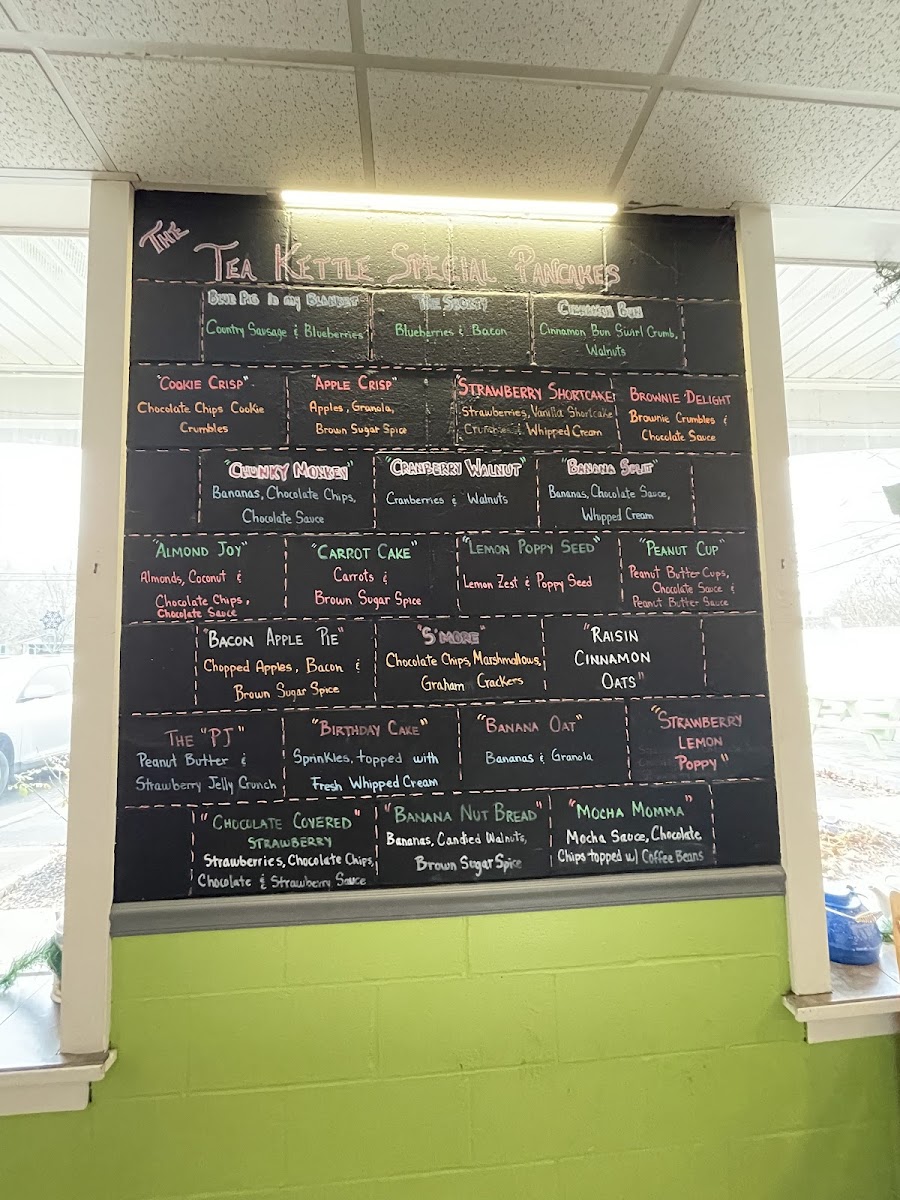 THE
TEA KETTLE SPECIAL PANCAKES
BLUE PIG in my BLANKET
Country Sausage & Blueberries
THE SHORTY
Blueberries & Bacon
CINNAMON BUN
Cinnamon Bun Swirl Crumb,
Walnuts
"COOKIE CRISP"
Chocolate Chips Cookie
Crumbles
"APPLE CRISP"
Apples, Granola,
Brown Sugar Spice
"STRAWBERRY SHORTCAKE"
Strawberries, Vanilla Shortcake
Crumbles & Whipped Cream
BROWNIE DELIGHT
Brownie Crumbles &
Chocolate Sauce
"CHUNKY MONKEY"
Bananas, Chocolate Chips,
Chocolate Sauce
"CRANBERRY WALNUT"
Cranberries & Walnuts
"BANANA SPLIT"
Bananas, Chocolate Sauce,
Whipped Cream
"ALMOND JOY"
Almonds, Coconut &
Chocolate Chips,
Chocolate Sauce
"CARROT CAKE"
Carrots &
Brown Sugar Spice
"LEMON POPPY SEED"
Lemon Zest & Poppy Seed
"PEANUT CUP"
Peanut Butter Cups,
Chocolate Sauce &
Peanut Butter Sauce
"BACON APPLE PIE"
Chopped Apples, Bacon &
Brown Sugar Spice
"S'MORE"
Chocolate Chips, Marshmallows,
Graham Crackers
"RAISIN
CINNAMON
OATS"
THE "PJ"
Peanut Butter &
Strawberry Jelly Crunch
"BIRTHDAY CAKE"
Sprinkles, topped with
Fresh Whipped Cream
"BANANA OAT"
Bananas & Granola
"STRAWBERRY
LEMON
POPPY"
"CHOCOLATE COVERED"
STRAWBERRY
Strawberries, Chocolate Chips,
Chocolate & Strawberry Sauce
"BANANA NUT BREAD"
Bananas, Candied Walnuts,
Brown Sugar Spice
"MOCHA MOMMA"
Mocha Sauce, Chocolate
Chips topped w/ Coffee Beans